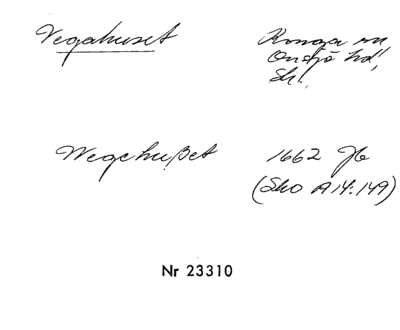 Vegahuset Konga sn
Onsjö hd,
Sk!
Wegehußet 1662 Jb
(Sko A14:149)
Nr 23310